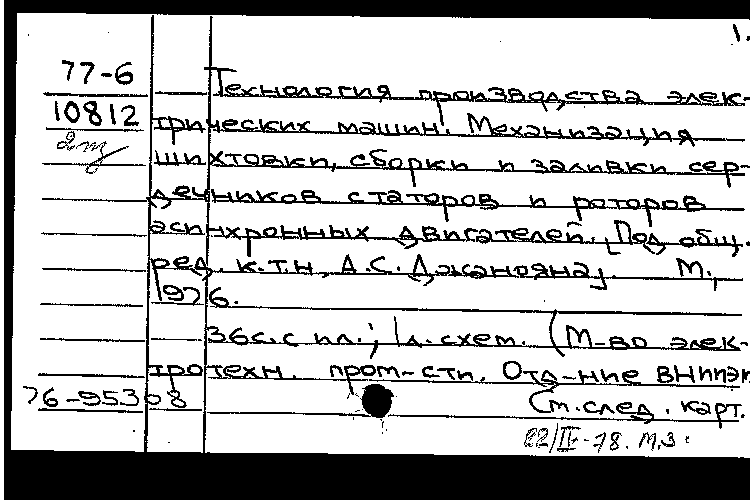 1.
77-6
Технология производства элек-
10812
трических машин. Механизация
2т
шихтовки, сборки и заливки сер-
дечников статоров и роторов
асинхронных двигателей. [Под общ.
ред. к.т.н. А.С. Джанояна]. М.,
1976.
36с. с ил.; 1л. схем. (М-во элек-
тротехн. пром-сти. Отд-ние ВНИИЭМ
76-95308
См. след. карт.
22/IV-78. М.З.